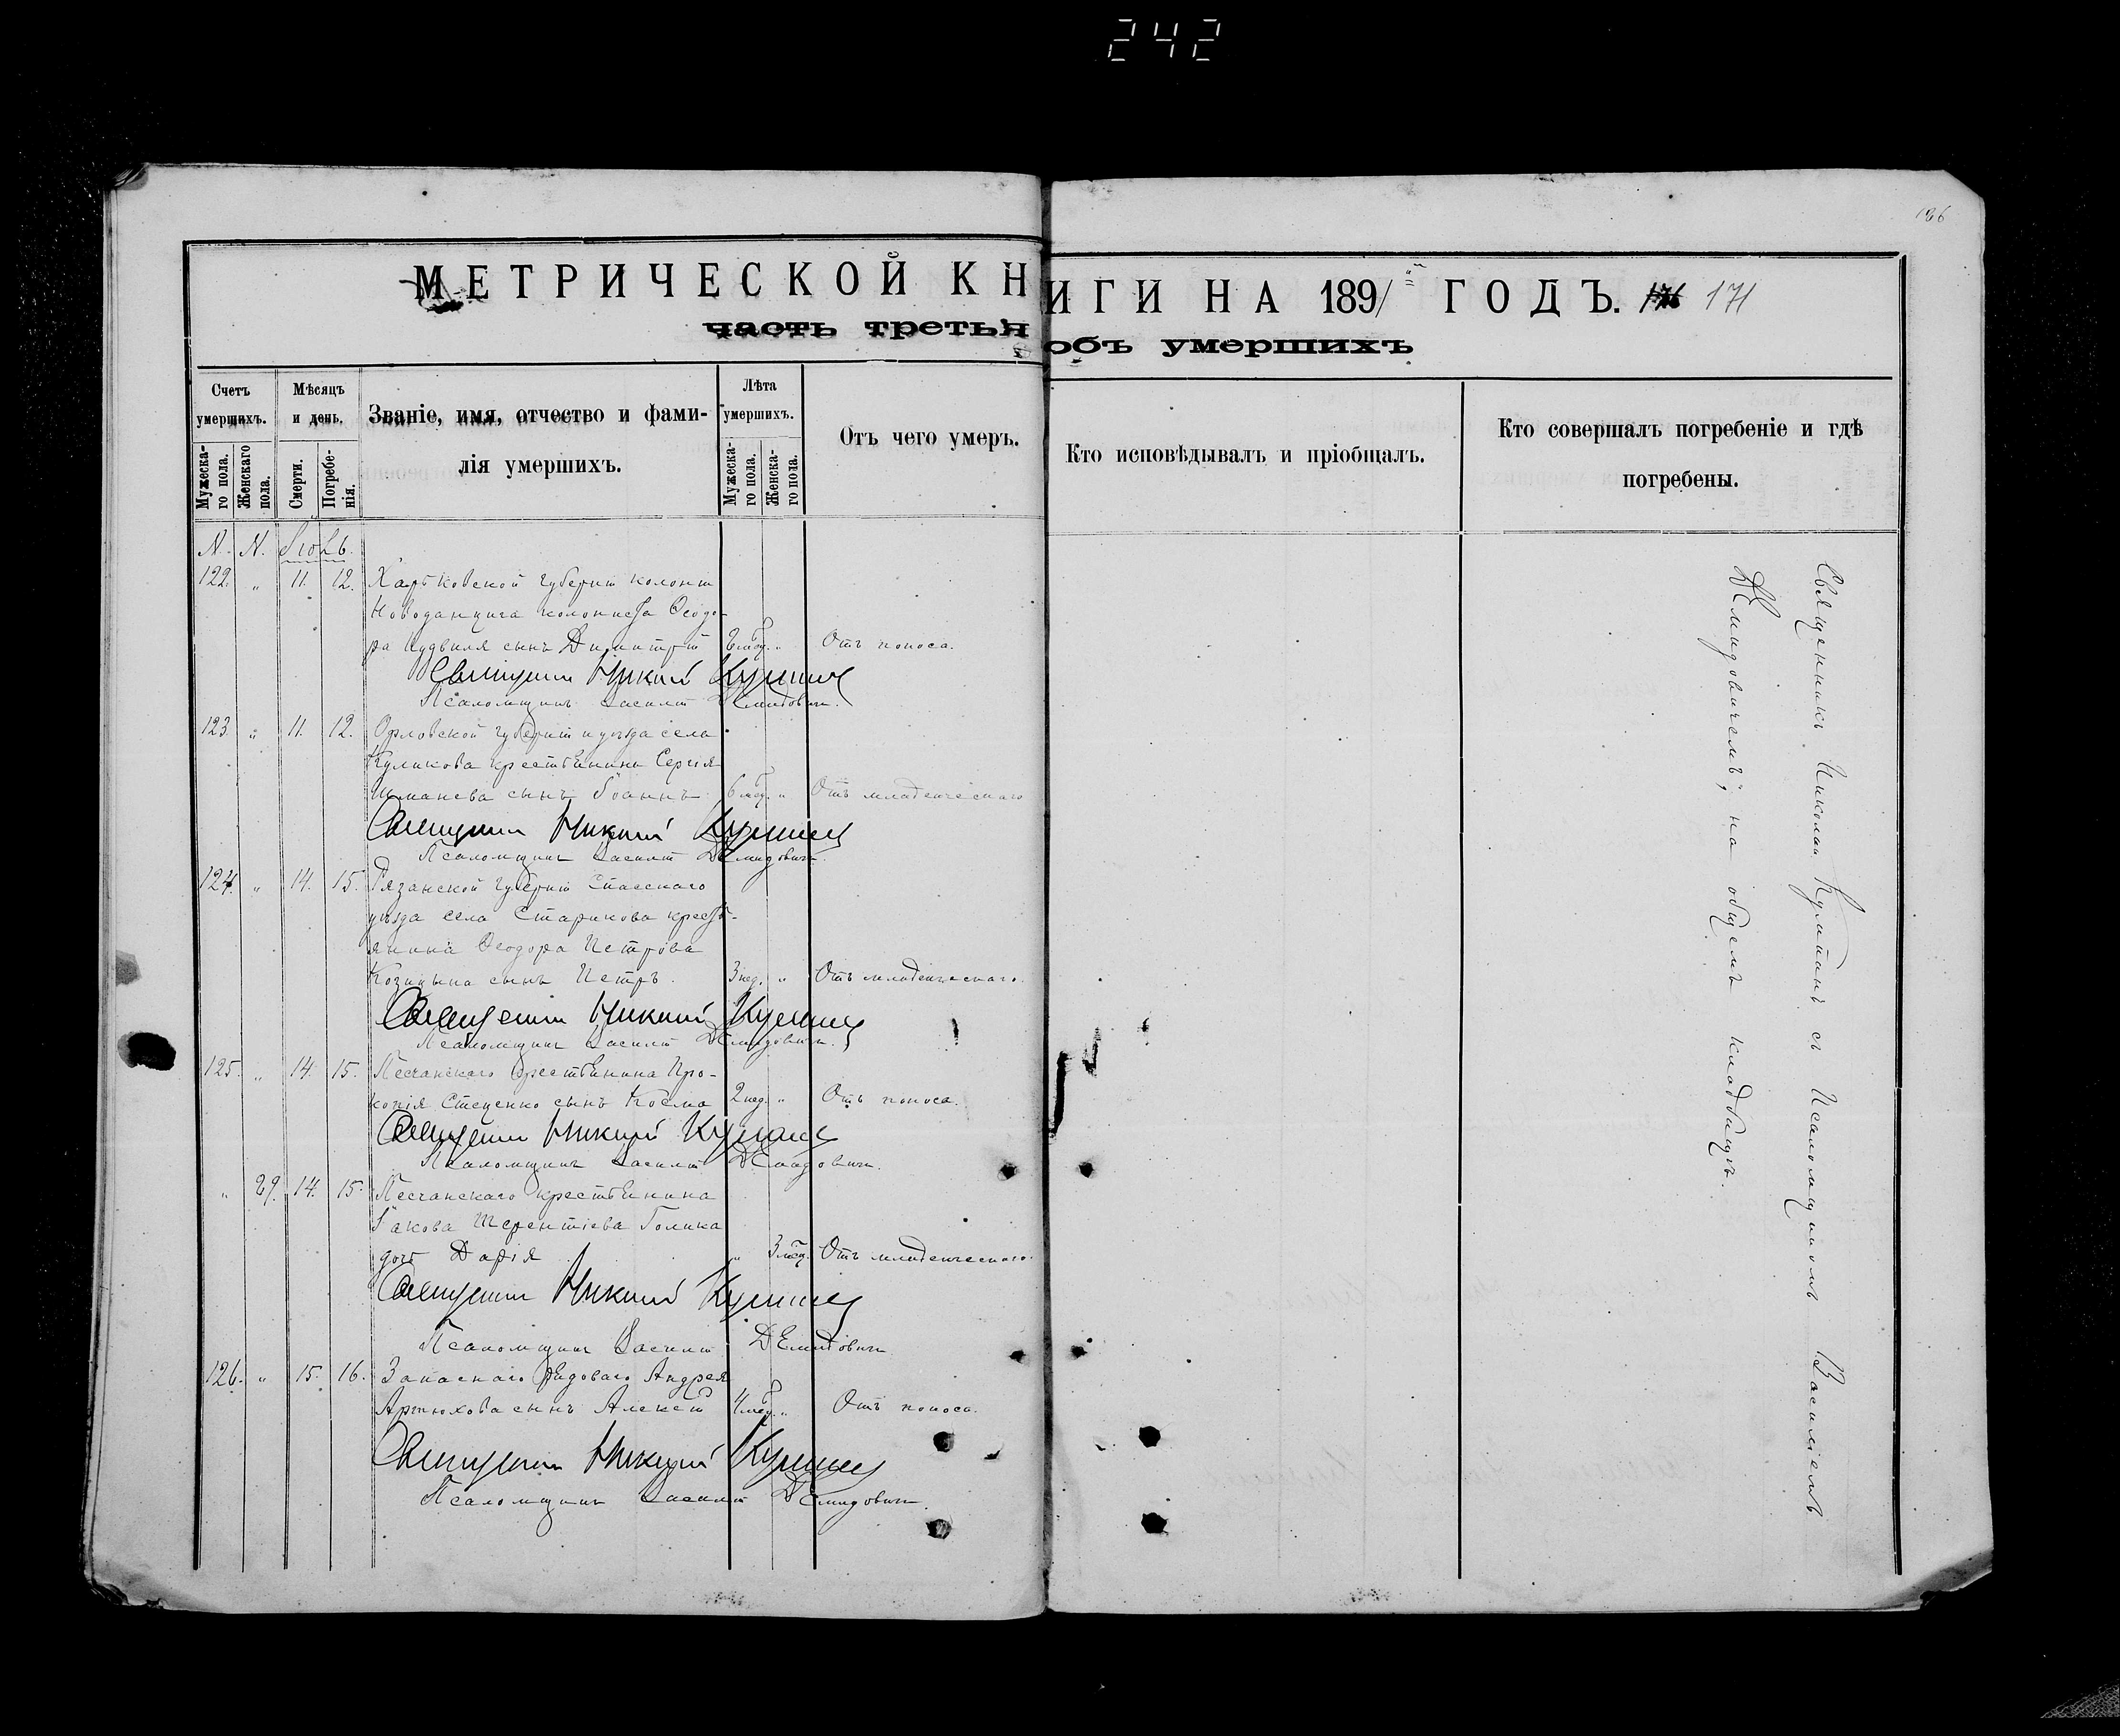 242
186
МЕТРИЧЕСКОЙ КНИГИ НА 1891й ГОДЪ. 171
часть третья объ умершихъ
Счетъ умершихъ.
Мѣсяцъ и день.
Званіе, имя, отчество и фамилія умершихъ.
Лѣта умершихъ.
Отъ чего умеръ.
Кто исповѣдывалъ и пріобщалъ.
Кто совершалъ погребеніе и гдѣ погребены.
Мужескаго пола.
Женскаго пола.
Смерти.
Погребенія.
Мужескаго пола.
Женскаго пола.
N. N. Іюль.
122. " 11. 12. Харьковской губерніи колоніи
Новоданцига колониста Ѳеодо-
ра сынъ Димитрій мѣс. " Отъ поноса.
Священникъ Николай
Псаломщикъ Василій Демидовичъ.
123. " 11. 12. Орловской губерніи и уѣзда села
Куликова крестьянина Сергія
сынъ Іоаннъ 6 мѣс. " Отъ младенческаго
Священникъ Николай
Псаломщикъ Василій Демидовичъ.
124. " 14. 15. Рязанской губерніи Спасскаго
уѣзда села Старикова кресть-
янина Ѳеодора Петрова
Козицына сынъ Петръ. 3 нед. " Отъ младенческаго.
Священникъ Николай
Псаломщикъ Василій Демидовичъ.
125. " 14. 15. Песчанскаго крестьянина Про-
копія Стеценко сынъ Косма 2 нед. " Отъ поноса.
Священникъ Николай
Псаломщикъ Василій Демидовичъ.
" 29. 14. 15. Песчанскаго крестьянина
Іакова Терентіева Голика
дочь Дарія " 3 мѣс. Отъ младенческаго.
Священникъ Николай
Псаломщикъ Василій Демидовичъ
126. " 15. 16. Запаснаго рядоваго Андрея
Артюхова сынъ Алексій 4 мѣс. " Отъ поноса.
Священникъ Николай
Псаломщикъ Василій Демидовичъ.
Священникъ Николай съ Псаломщикомъ Василіемъ
Демидовичемъ, на общемъ кладбищѣ.